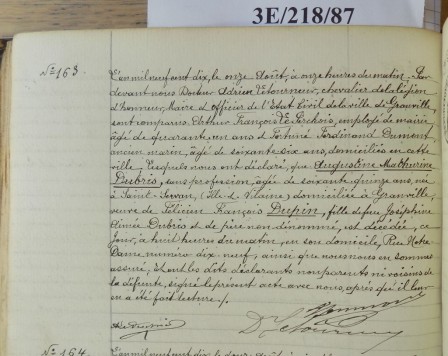 3E/218/87
N° 163.
L'an mil neuf cent dix, le onze Août, à onze heures du matin. Par
devant nous Docteur Adrien Letourneur, chevalier de la légion
d'honneur, Maire et Officier de l'Etat Civil de la ville de Granville
sont comparus Arthur François Le Perchois, employé de mairie
âgé de quarante un ans et Fortuné Ferdinand Dumont
ancien marin, âgé de soixante six ans, domiciliés en cette
ville, lesquels nous ont déclaré, que Augustine Mathurine
Dubris, sans profession, âgée de soixante quinze ans, née
à Saint-Servan, (Ille-&-Vilaine) domiciliée à Granville,
veuve de Félicien François Dupin, fille de feue Joséphine
Aimée Dubris et de père non dénommé, est décédée, ce
jour, à huit heures du matin, en son domicile, Rue Notre
Dame numéro dix neuf, ainsi que nous nous en sommes
assuré, et ont les dits déclarants non parents ni voisins de
la défunte, signé le présent acte avec nous, après qu'il leur
en a été fait lecture./.
Dumont
D. Letourneur
N° 164.
L'an mil neuf cent dix, le douze Août